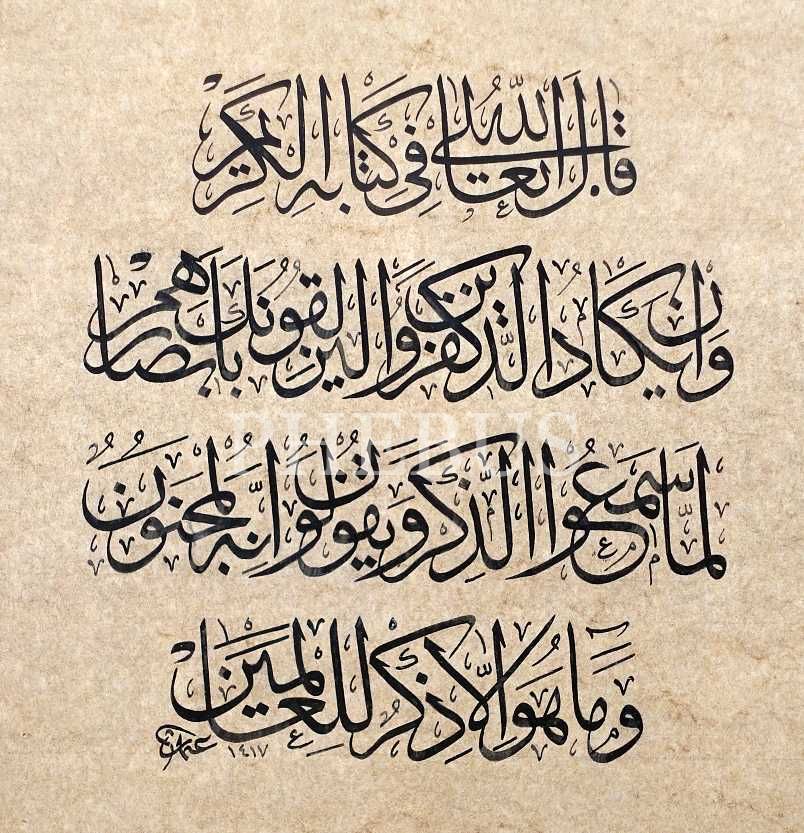 قال الله تعالى في كتابه الكريم
وَإِن يَكَادُ الَّذِينَ كَفَرُوا لَيُزْلِقُونَكَ بِأَبْصَارِهِمْ
PHEBUS
لَمَّا سَمِعُوا الذِّكْرَ وَيَقُولُونَ إِنَّهُ لَمَجْنُونٌ
وَمَا هُوَ إِلَّا ذِكْرٌ لِلْعَالَمِينَ
١٤١٧